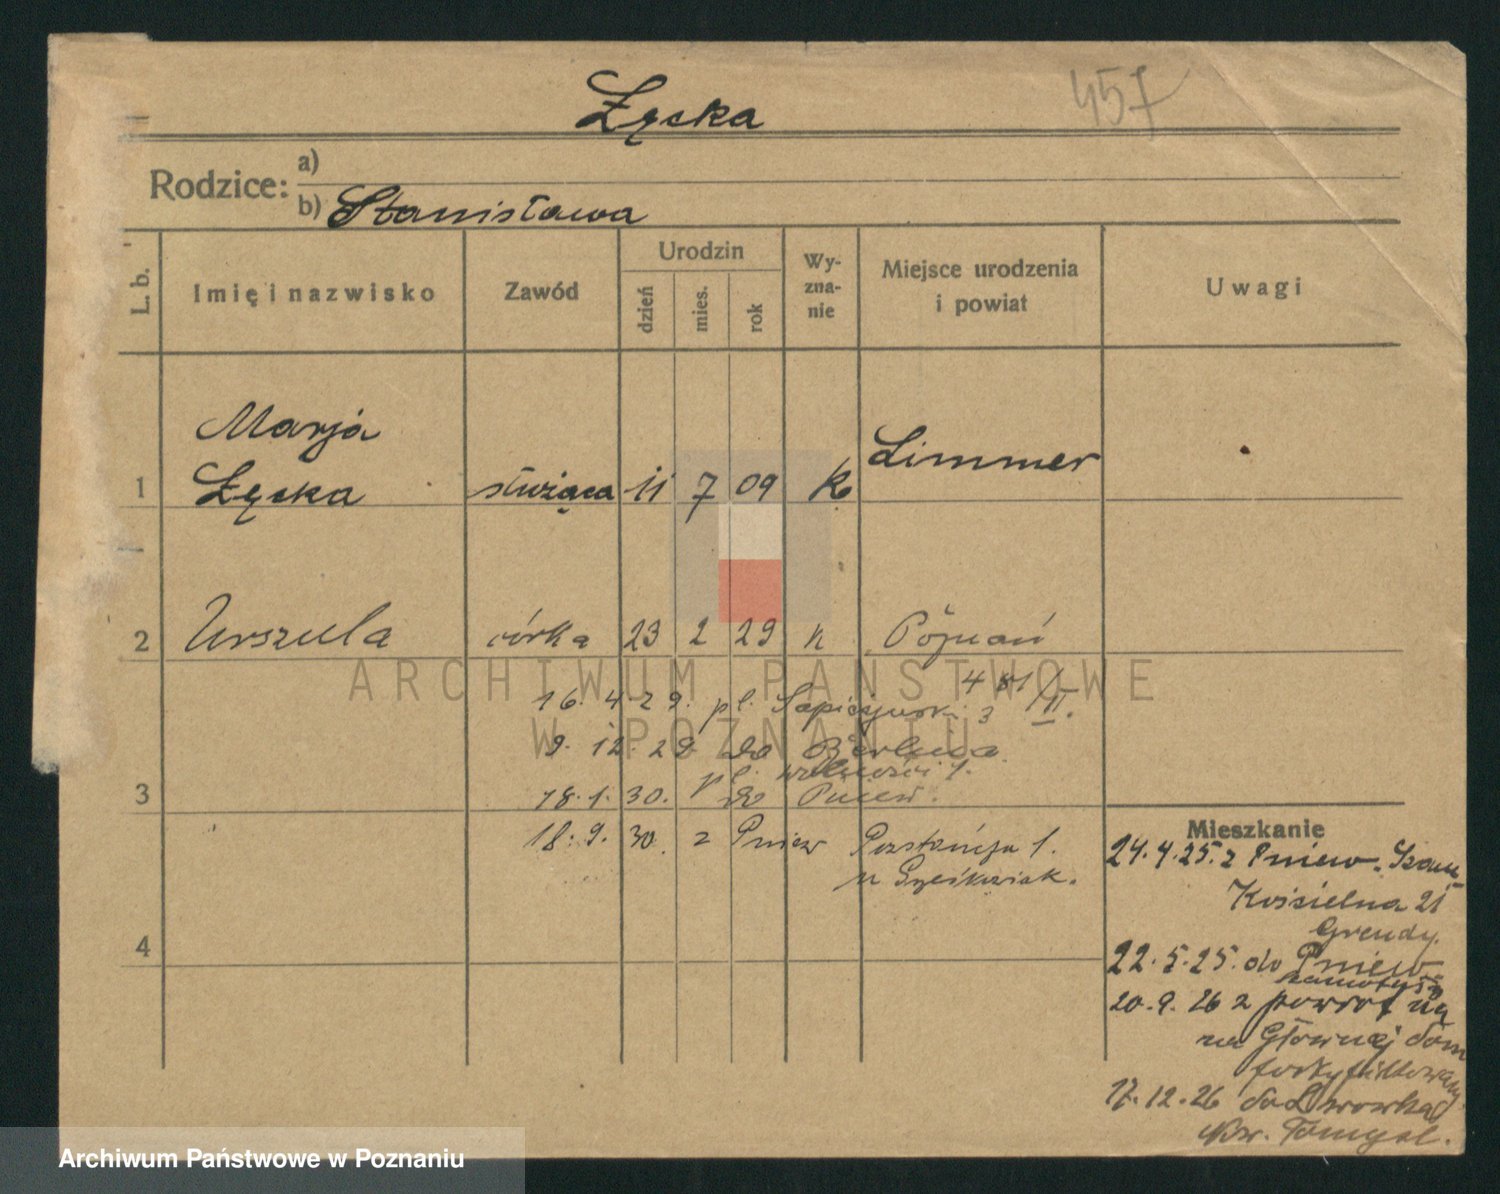 Łęcka
457
Rodzice:
a)
b) Stanisława
L. b.
Imię i nazwisko
Zawód
Urodzin
dzień
mies.
rok
Wy-
zna-
nie
Miejsce urodzenia
i powiat
Uwagi
Marja
1 Łęcka służąca 11 7 09 k Limmer
2 Urszula córka 23 2 29 k Poznań
ARCHIWUM PAŃSTWOWE
W POZNANIU
16.4.29. pl. Sapieżyński 3
9.12.29 do Berlina
pl. wolności 1.
3
18.1.30. do Pniew.
18.9.30. z Pniew
4
Mieszkanie
24.4.25. z Pniew.
Kościelna 21
Grendy.
22.5.25. do Pniew
20.9.26 z powrot
na Głównej dom
17.12.26 do Lwówka
Now. Tomyśl.
Archiwum Państwowe w Poznaniu